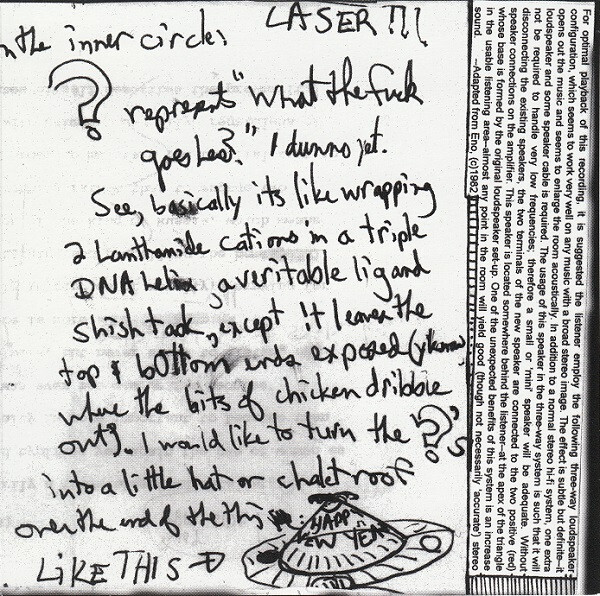 LASER!!!
n the inner circle:
? represent "What the fuck
goes here?" I dunno yet.
See, basically its like wrapping
2 Lanthamide cations in a triple
DNA helix, a veritable ligand
shish taok, except it leaves the
top & bottom ends exposed (yknow,
where the bits of chicken dribble
out). I would like to turn the ?'s
into a little hat or chalet roof
over the end of the thing:
HAPPY
NEW YEAR
LIKE THIS →
For optimal playback of this recording, it is suggested the listener employ the following three-way loudspeaker
configuration, which seems to work very well on any music with a broad stereo image. The effect is subtle but definite--it
opens out the music and seems to enlarge the room acoustically. In addition to a normal stereo hi-fi system, one extra
loudspeaker and some speaker cable is required. The usage of this speaker in the three-way system is such that it will
not be required to handle very low frequencies; therefore a small or 'mini' speaker will be adequate. Without
disconnecting the existing speakers, the two terminals of the new speaker are connected to the two positive (red)
speaker connections on the amplifier. This speaker is located somewhere behind the listener--at the apex of the triangle
whose base is formed by the original loudspeaker set-up. One of the unexpected benefits of this system is an increase
in the usable listening area--almost any point in the room will yield good (though not necessarily 'accurate') stereo
sound. --Adapted from Eno, (c)1982